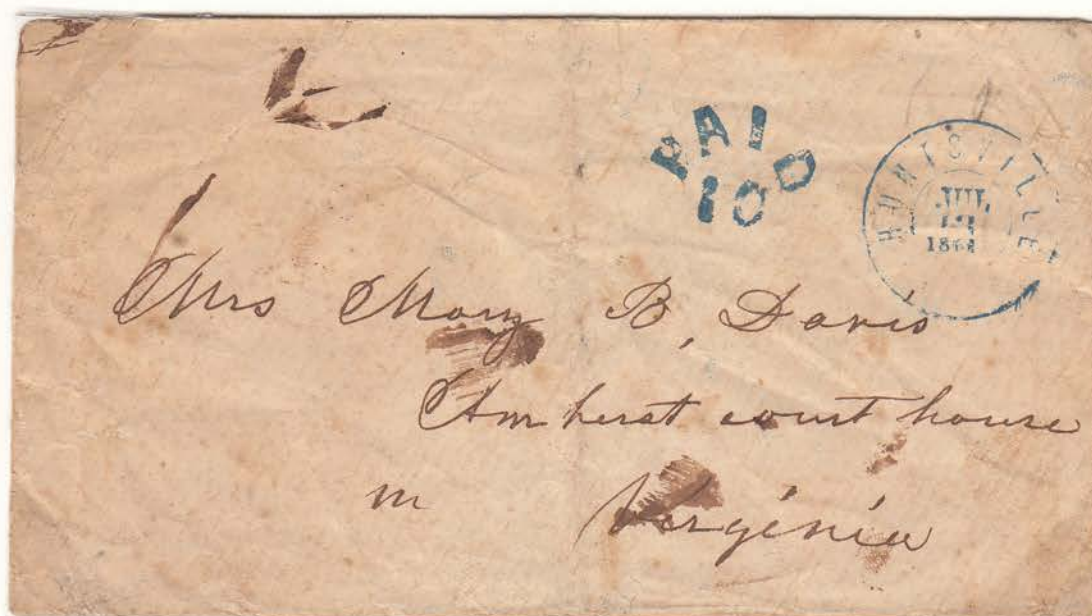 PAID
10
HUNTSVILLE
JUL
Mrs Mary B, Davis
Amherst court house
Virginia